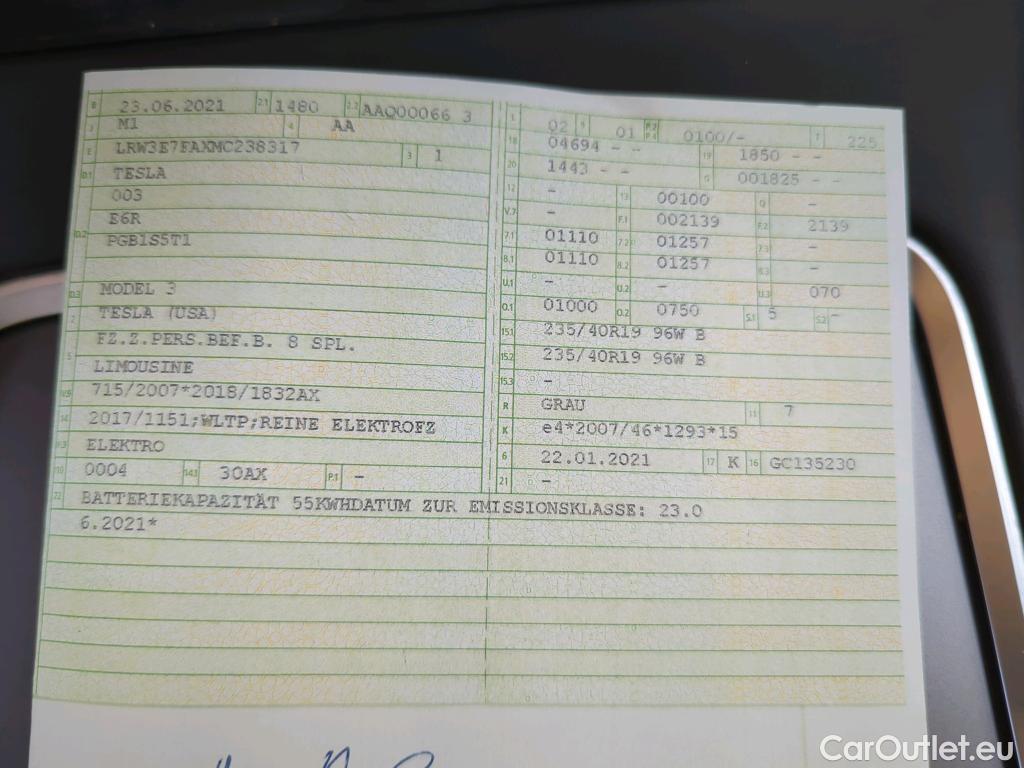 B 23.06.2021 2.1 1480 2.2 AAQ00066 3
J M1 4 AA
E LRW3E7FAXMC238317 3 1
D.1 TESLA
003
E6R
D.2 PGB1S5T1
D.3 MODEL 3
2 TESLA (USA)
FZ.Z.PERS.BEF.B. 8 SPL.
5 LIMOUSINE
V.9 715/2007*2018/1832AX
14 2017/1151;WLTP;REINE ELEKTROFZ
P.3 ELEKTRO
10 0004 14.1 30AX P.1 -
L 02 9 01 P.2 P.4 0100/- T 225
18 04694 - - 19 1850 - -
20 1443 - - G 001825 - -
12 - 13 00100 Q -
V.7 - F.1 002139 F.2 2139
7.1 01110 7.2 01257 7.3 -
8.1 01110 8.2 01257 8.3 -
U.1 - U.2 - U.3 070
O.1 01000 O.2 0750 S.1 5 S.2 -
15.1 235/40R19 96W B
15.2 235/40R19 96W B
15.3 -
R GRAU 11 7
K e4*2007/46*1293*15
6 22.01.2021 17 K 16 GC135230
21 -
22 BATTERIEKAPAZITÄT 55KWHDATUM ZUR EMISSIONSKLASSE: 23.0
6.2021*
CarOutlet.eu